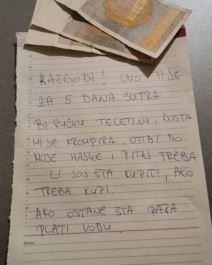 RAZGVODI! OVO TI JE
ZA 5 DANA. SUTRA
BI RUČKU TELETINE, DOSTA
MI JE KROMPIRA. OTIĐI DO
MOJE MAJKE, I PITAJ TREBA
LI JOŠ ŠTA KUPITI, AKO
TREBA KUPI.
AKO OSTANE ŠTA PARA
PLATI VODU.